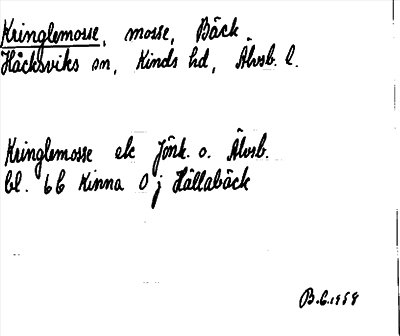 Kringlemosse, mosse, Bäck.
Häcksviks sn, Kinds hd, Älvsb. l.
Kringlemosse ek Jönk. o. Älvsb.
bl. 66 Kinna O j Hällabäck
B.G. 1958